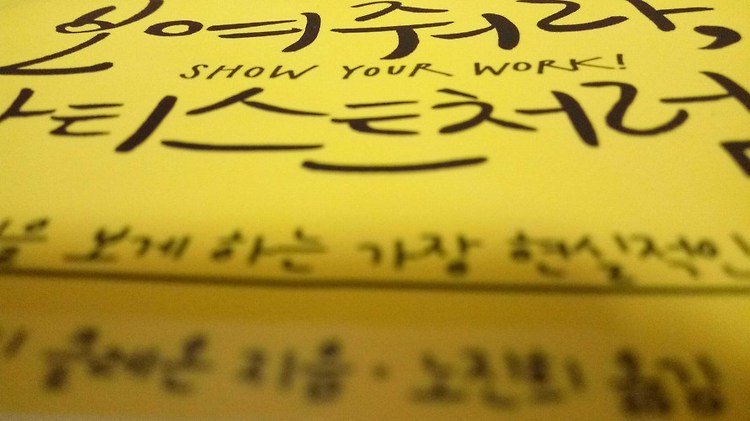 보여줘라,
SHOW YOUR WORK!
아티스트처럼
을 보게 하는 가장 현실적인
클레온 지음 · 노진희 옮김